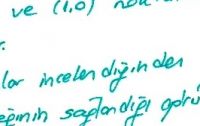 ve (1,0) nok
r.
lar incelendiğinden
eğinin sağlandığı görü